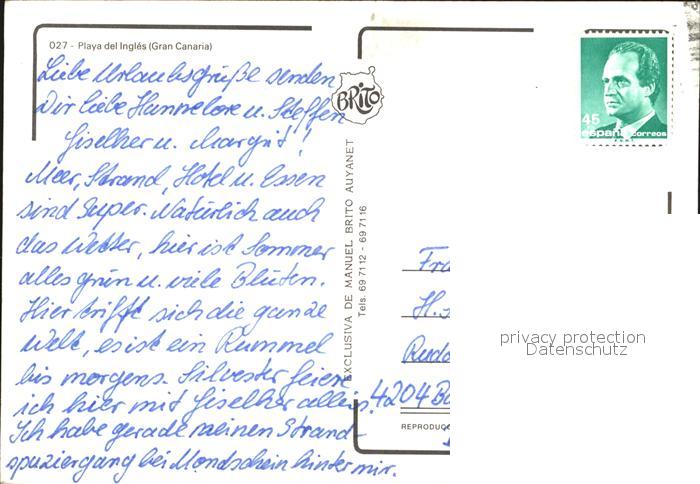 027 - Playa del Inglés (Gran Canaria)
Liebe Urlaubsgrüße senden
Dir liebe Hannelore u. Steffen
Giselher u. Margit!
Meer, Strand, Hotel u. Essen
sind super. Natürlich auch
das Wetter, hier ist Sommer
alles grün u. viele Blüten.
Hier trifft sich die ganze
Welt, es ist ein Rummel
bis morgens. Silvester feiere
ich hier mit Giselher allein.
Ich habe gerade meinen Strand-
spaziergang bei Mondschein hinter mir.
BRITO
EXCLUSIVA DE MANUEL BRITO AUYANET
Tels. 69 71 12 - 69 71 16
45
españa correos
Fra
H.
Rudo
4204 Ba
REPRODUC
privacy protection
Datenschutz